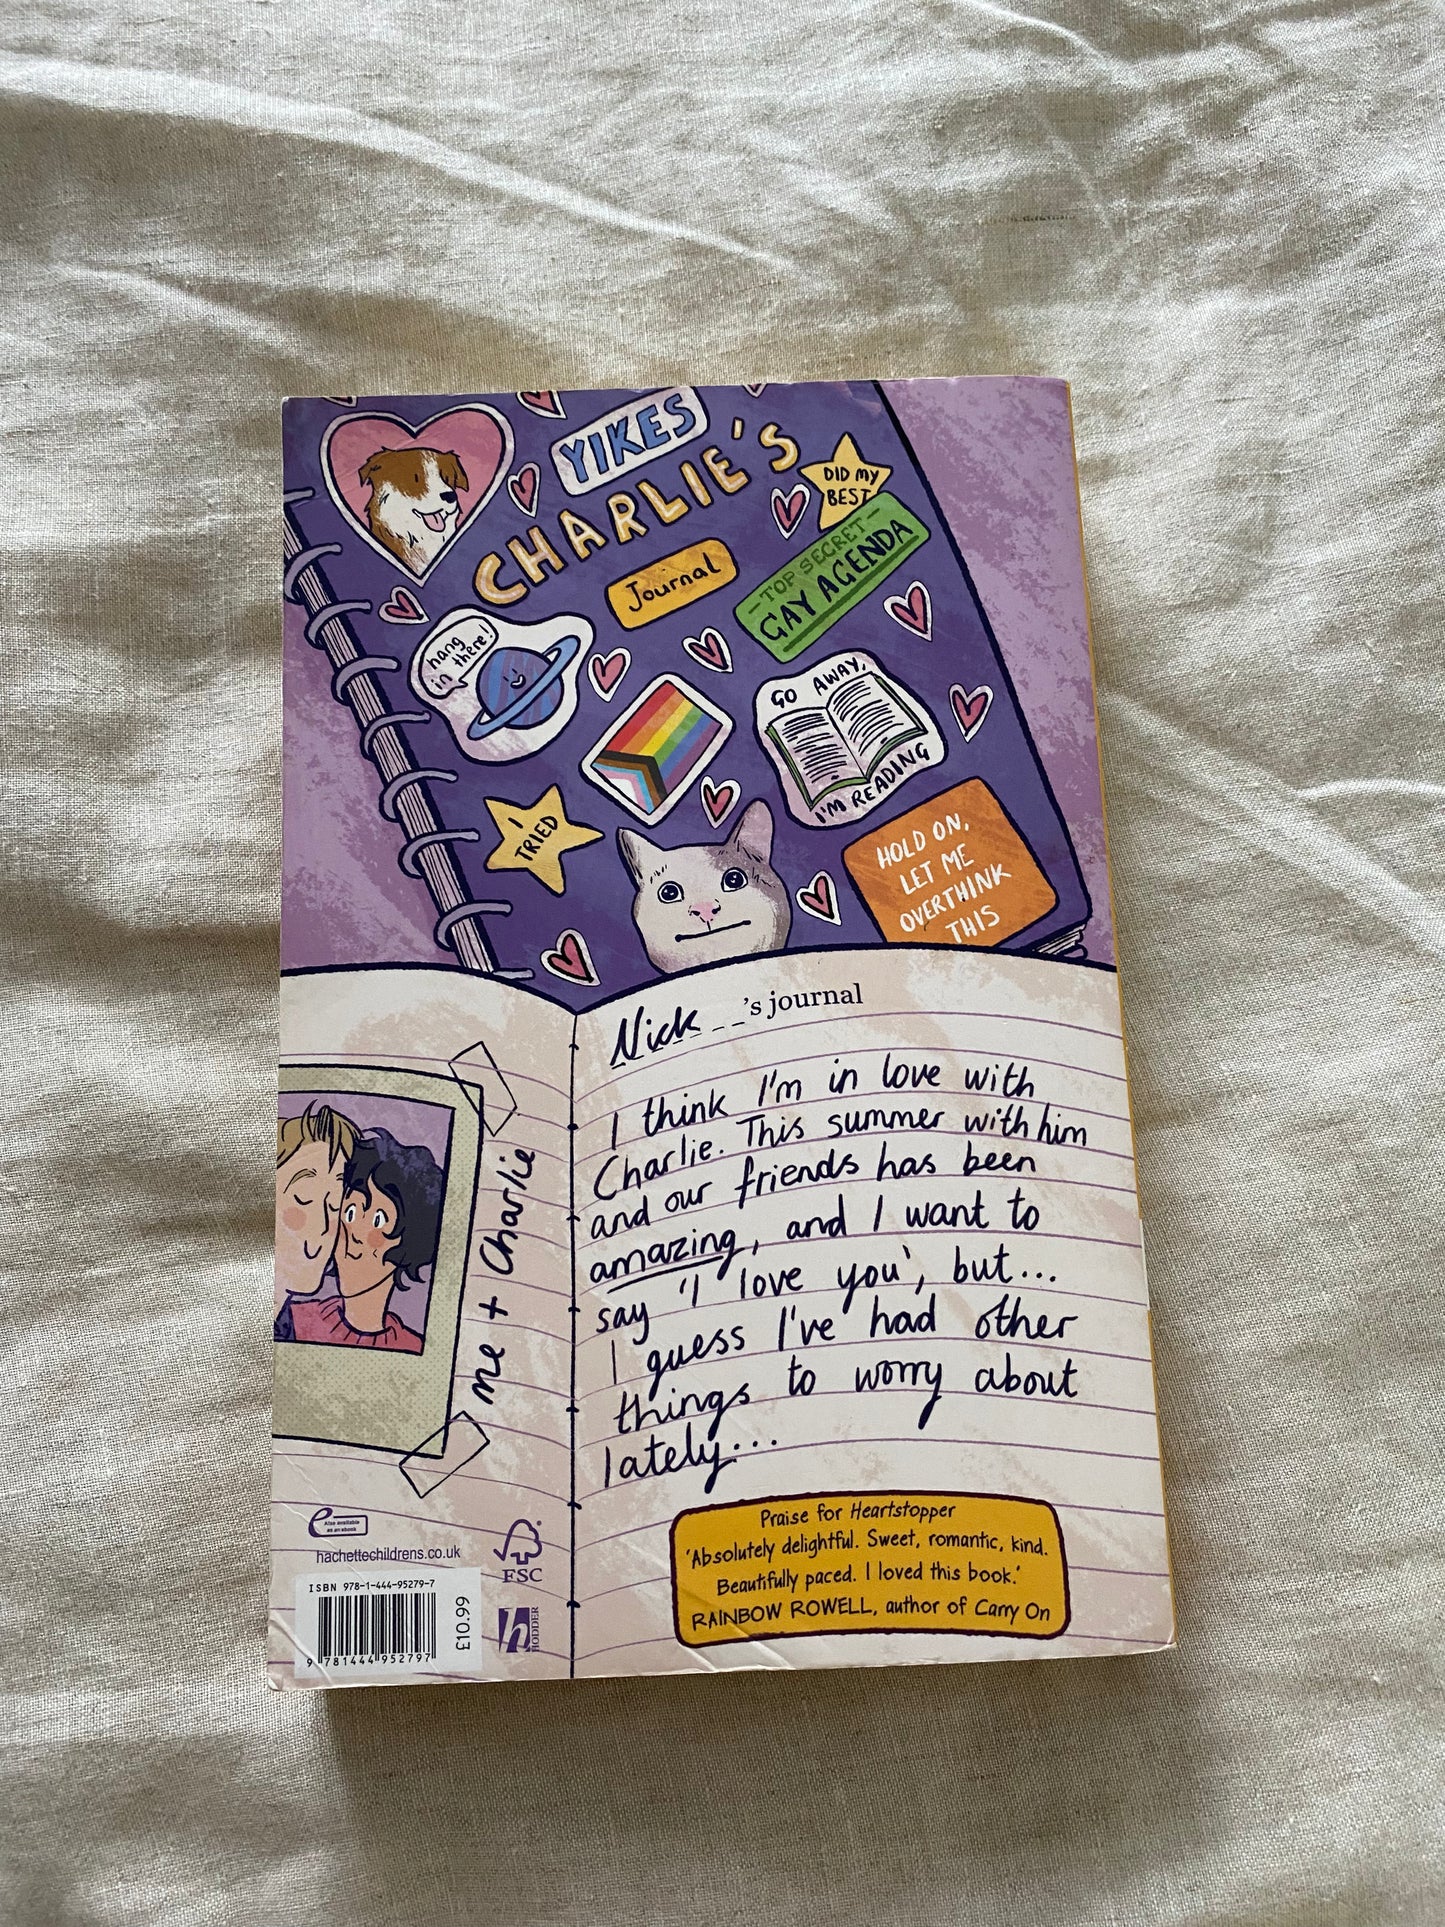 YIKES
CHARLIE'S
Journal
DID MY
BEST
- TOP SECRET -
GAY AGENDA
hang
in there!
GO AWAY,
I'M READING
I
TRIED
HOLD ON,
LET ME
OVERTHINK
THIS
Nick's journal
I think I'm in love with
Charlie. This summer with him
and our friends has been
amazing, and I want to
say 'I love you', but...
I guess I've had other
things to worry about
lately...
me + Charlie
Praise for Heartstopper
'Absolutely delightful. Sweet, romantic, kind.
Beautifully paced. I loved this book.'
RAINBOW ROWELL, author of Carry On
e
Also available
as an ebook
hachettechildrens.co.uk
FSC
ISBN 978-1-444-95279-7
9 781444 952797
£10.99
h
HODDER